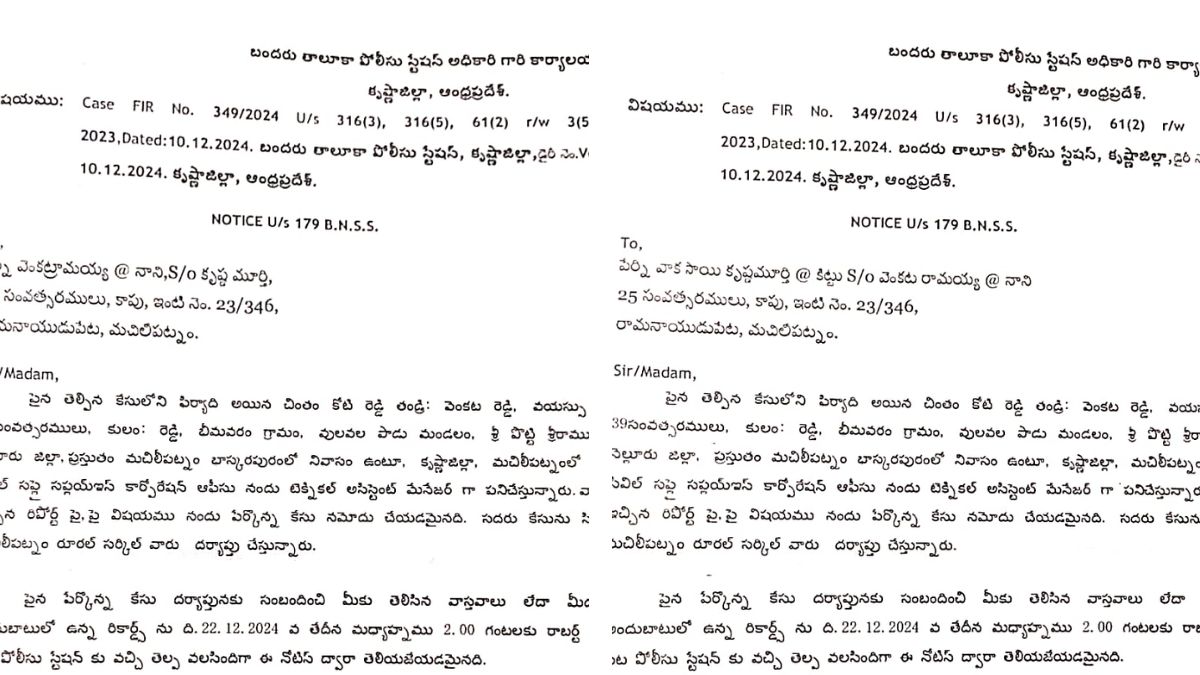 బందరు తాలూకా పోలీసు స్టేషన్ అధికారి గారి
కృష్ణాజిల్లా, ఆంధ్రప్రదేశ్.
Case FIR No. 349/2024 U/s 316(3), 316(5), 61(2) r/w
2023,Dated:10.12.2024. బందరు తాలూకా పోలీసు స్టేషన్, కృష్ణాజిల్లా,డైరీ నెం.
10.12.2024. కృష్ణాజిల్లా, ఆంధ్రప్రదేశ్.
NOTICE U/s 179 B.N.S.S.
వెంకట్రామయ్య @ నాని,S/o కృష్ణ మూర్తి,
సంవత్సరములు, కాపు, ఇంటి నెం. 23/346,
మచిలీపట్నం.
/Madam,
పైన తెల్పిన కేసులోని ఫిర్యాది అయిన చింతం కోటి రెడ్డి తండ్రి: వెంకట రెడ్డి, వయస్సు
కులం: రెడ్డి, బీమవరం గ్రామం, వులవల పాడు మండలం, శ్రీ పొట్టి
జిల్లా, ప్రస్తుతం మచిలీపట్నం బాస్కరపురంలో నివాసం ఉంటూ, కృష్ణాజిల్లా, మచిలీపట్నంలో
సప్లై సప్లయ్ఇస్ కార్పోరేషన్ ఆఫీసు నందు టెక్నికల్ అసిస్టెంట్ మేనేజర్ గా పనిచేస్తున్నారు.
రిపోర్ట్ పై, పై విషయము నందు పేర్కొన్న కేసు నమోదు చేయడమైనది. సదరు కేసును
రూరల్ సర్కిల్ వారు దర్యాప్తు చేస్తున్నారు.
పైన పేర్కొన్న కేసు దర్యాప్తునకు సంబందించి మీకు తెలిసిన వాస్తవాలు లేదా
ఉన్న రికార్డ్స్ ను ది.22.12.2024 వ తేదీన మధ్యాహ్నము 2.00 గంటలకు రాబర్ట్
పోలీసు స్టేషన్ కు వచ్చి తెల్ప వలసిందిగా ఈ నోటీస్ ద్వారా తెలియజేయడమైనది.
బందరు తాలూకా పోలీసు స్టేషన్ అధికారి గారి
కృష్ణాజిల్లా, ఆంధ్రప్రదేశ్.
విషయము: Case FIR No. 349/2024 U/s 316(3), 316(5), 61(2) r/w
2023,Dated:10.12.2024. బందరు తాలూకా పోలీసు స్టేషన్, కృష్ణాజిల్లా,డైరీ
10.12.2024. కృష్ణాజిల్లా, ఆంధ్రప్రదేశ్.
NOTICE U/s 179 B.N.S.S.
To,
పేర్ని వాక సాయి కృష్ణమూర్తి @ కిట్టు S/o వెంకట రామయ్య @ నాని
25 సంవత్సరములు, కాపు, ఇంటి నెం. 23/346,
రామనాయుడుపేట, మచిలీపట్నం.
Sir/Madam,
పైన తెల్పిన కేసులోని ఫిర్యాది అయిన చింతం కోటి రెడ్డి తండ్రి: వెంకట రెడ్డి,
39సంవత్సరములు, కులం: రెడ్డి, బీమవరం గ్రామం, వులవల పాడు మండలం, శ్రీ పొట్టి
నెల్లూరు జిల్లా, ప్రస్తుతం మచిలీపట్నం బాస్కరపురంలో నివాసం ఉంటూ, కృష్ణాజిల్లా,
సివిల్ సప్లై సప్లయ్ఇస్ కార్పోరేషన్ ఆఫీసు నందు టెక్నికల్ అసిస్టెంట్ మేనేజర్ గా పనిచేస్తున్నారు.
ఇచ్చిన రిపోర్ట్ పై, పై విషయము నందు పేర్కొన్న కేసు నమోదు చేయడమైనది. సదరు కేసును
మచిలీపట్నం రూరల్ సర్కిల్ వారు దర్యాప్తు చేస్తున్నారు.
పైన పేర్కొన్న కేసు దర్యాప్తునకు సంబందించి మీకు తెలిసిన వాస్తవాలు లేదా
అందుబాటులో ఉన్న రికార్డ్స్ ను ది.22.12.2024 వ తేదీన మధ్యాహ్నము 2.00 గంటలకు
పోలీసు స్టేషన్ కు వచ్చి తెల్ప వలసిందిగా ఈ నోటీస్ ద్వారా తెలియజేయడమైనది.